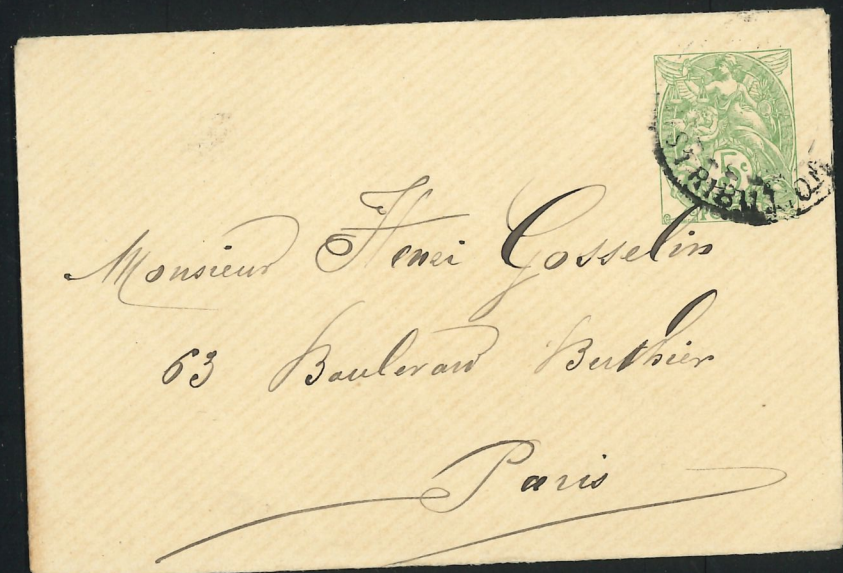 5c
STRIBUTION
Monsieur Henri Gosselin
63 Boulevard Berthier
Paris